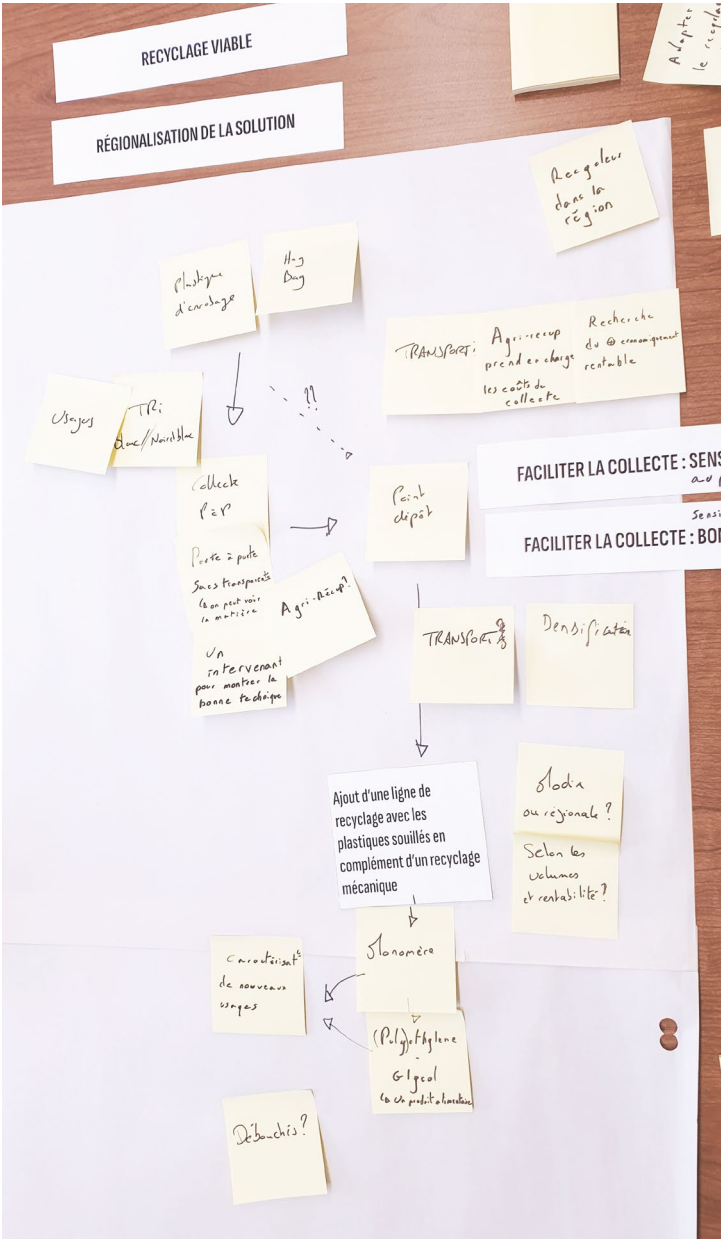 RECYCLAGE VIABLE
RÉGIONALISATION DE LA SOLUTION
Adapter
le
Recycleur
dans la
région
Plastique
d'enrobage
Bag
TRANSPORT:
Agri-récup
prend en charge
les coûts de
collecte
Recherche
du + economiquement
rentable
??
Usages
TRi
blanc // Noir et blanc
Collecte
PàP
Porte à porte
Sacs transparents
on peut voir
la matière
Un
intervenant
pour montrer la
bonne technique
Agri-Récup?
Point
dépôt
FACILITER LA COLLECTE : SENS
FACILITER LA COLLECTE : BON
Sensi
TRANSPORT
Densification
Ajout d'une ligne de
recyclage avec les
plastiques souillés en
complément d'un recyclage
mécanique
ou régionale ?
Selon les
volumes
et rentabilité ?
Monomère
Caractérisat°
de nouveaux
usages
(Poly)ethylene
-
Glycol
un produit alimentaire
Débouchés?